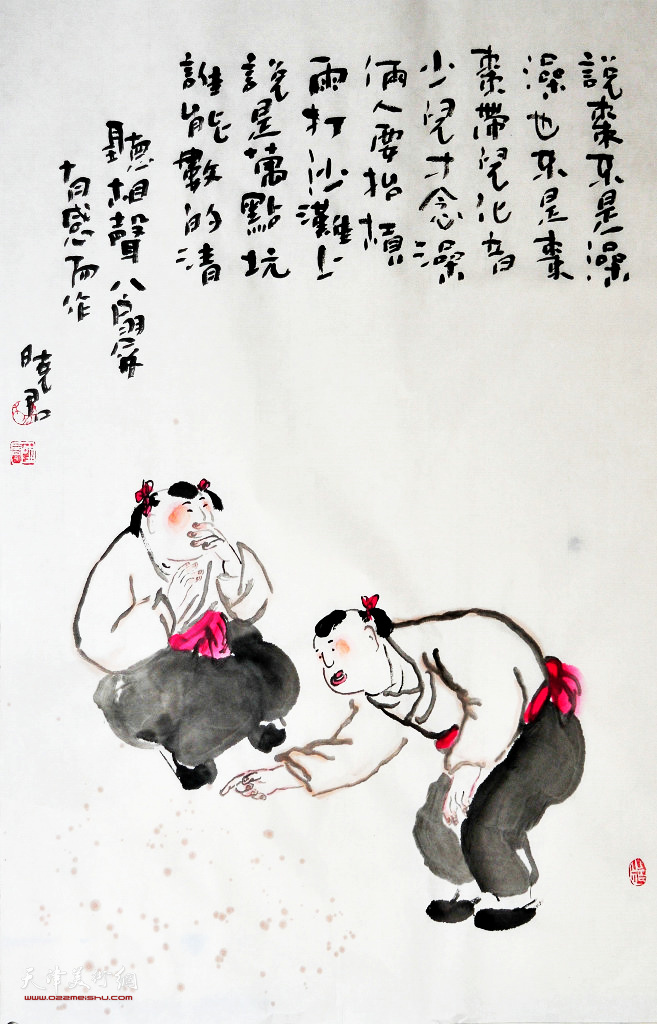 說棗不是澡
澡也不是棗
棗帶兒化音
少兒才念澡
倆人要抬槓
雨打沙灘上
說是萬點坑
誰能數的清
聽相聲八扇屏
有感而作
曉君
天津美術網
www.022meishu.com